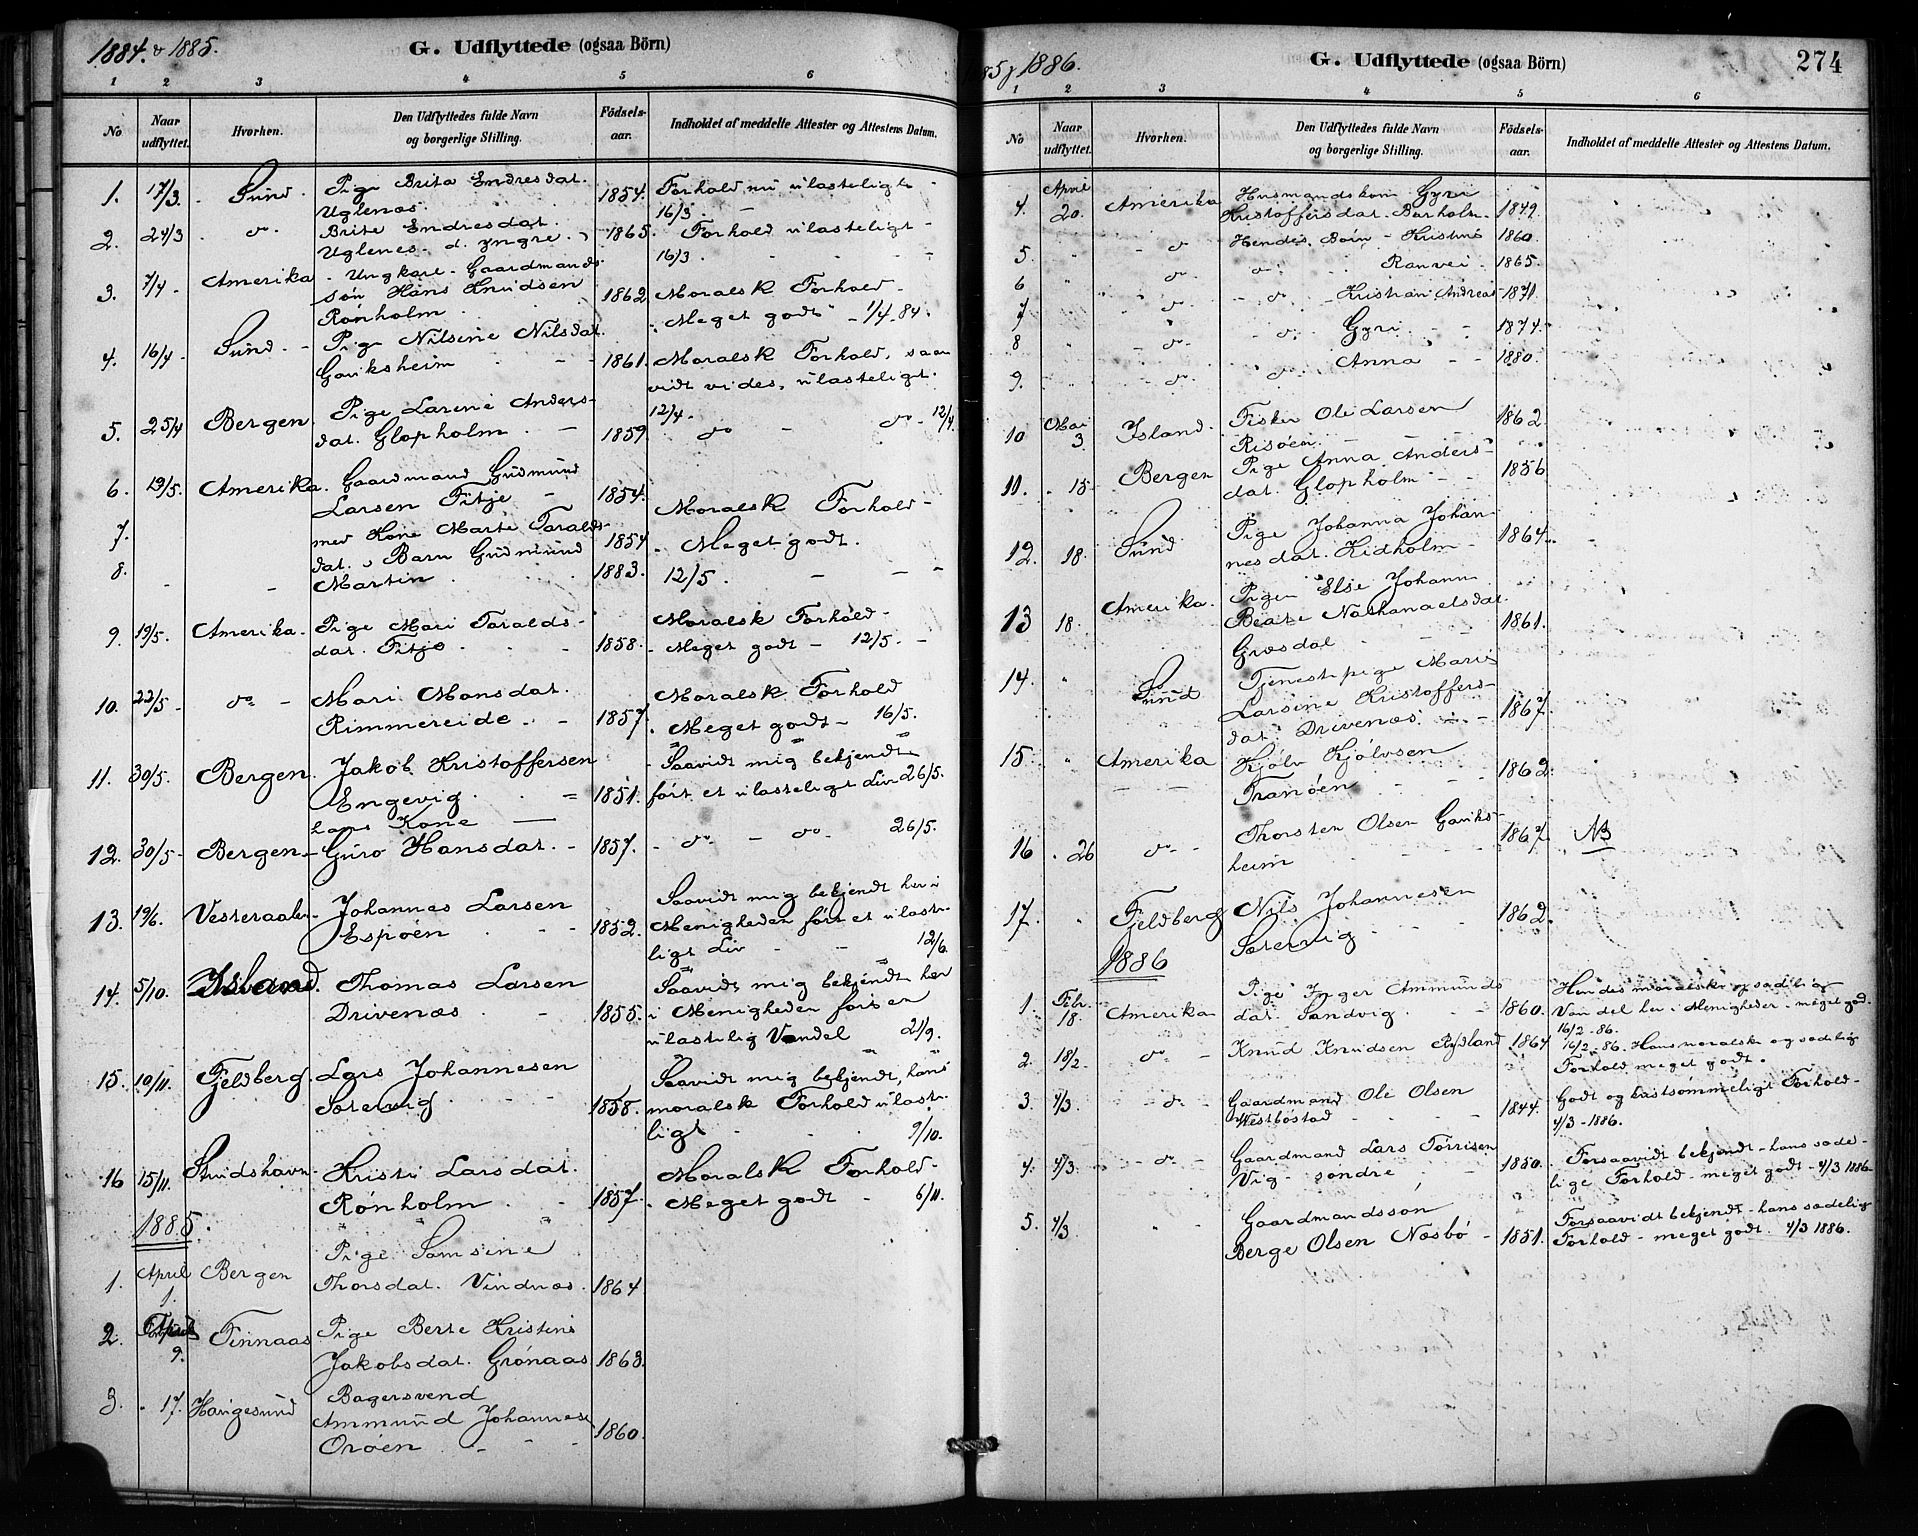 1884. & 1885.
G. Udflyttede (ogsaa Börn)
1 2 3 4 5 6
No
Naar udflyttet.
Hvorhen.
Den Udflyttedes fulde Navn og borgerlige Stilling.
Födsels-aar.
Indholdet af meddelte Attester og Attestens Datum.
1. 17/3. Sund. Pige Brita Endresdat. 1854. Forhold nu ulasteligt
Uglenæs. 16/3
2. 24/3 do. Brite Endresdat. 1865. Forhold ulasteligt
Uglenes. d. yngre. 16/3.
3. 7/4 Amerika. Ungkarl. Gaardmands-
søn Hans Knudsen 1862 Moralsk Forhold
Rønholm. Meget godt 1/4. 84.
4. 16/4 Sund. Pige Nilsine Nilsdat.
Gaviksheim 1861. Moralsk Forhold, saa
vidt vides, ulasteligt.
5. 25/4 Bergen Pige Larine Anders- 12/4.
dat. Glopholm. 1859. do do 12/4.
6. 19/5. Amerika. Gaardmand Gudmund
Larsen Fitje 1854. Moralsk Forhold
7. med Kone Marte Taralds- 1854 Meget godt.
8. dat. Barn Gudmund
Martin 1883. 12/5.
9. 19/5. Amerika. Pige Mari Taralds- Moralsk Forhold
dat. Fitje 1858. Meget godt 12/5.
10. 22/5 do Mari Monsdat. Moralsk Forhold
Rimmereide. 1857. Meget godt 16/5.
11. 30/5. Bergen. Jakob Kristoffersen Saavidt mig bekjendt
Engevig. 1851. ført et ulasteligt Liv 26/5.
hans Kone
12. 30/5 Bergen. Guro Hansdat. 1857. do do. 26/5.
13. 19/6. Vesteraalen. Johannes Larsen Saavidt mig bekjendt her i
Espøen 1852. Menigheden ført et ulaste-
ligt Liv 12/6.
14. 5/10. Island. Thomas Larsen Saavidt mig bekjendt her
Drivenæs 1855. i Menigheden ført en
ulastelig Vandel 21/9.
15. 10/11. Fjeldberg. Lars Johannesen Saavidt mig bekjendt, hans
Sørevig 1858. moralsk Forhold ulaste-
ligt 9/10.
16 15/11. Skudshavn Kristi Larsdat. Moralsk Forhold
Rønholm 1857. Meget godt 6/11.
1885.
1. April 1. Bergen Pige Samsine
Thorsdat. Vindnæs. 1864
2. April 9. Finnaas Pige Berte Kristine
Jakobsdat. Grønaas 1863.
3. 17. Haugesund Bagersvend
Ammund Johannese
Orøen 1860.
85 & 1886.
G. Udflyttede (ogsaa Börn)
274
1 2 3 4 5 6
No
Naar udflyttet.
Hvorhen.
Den Udflyttedes fulde Navn og borgerlige Stilling.
Födsels-aar.
Indholdet af meddelte Attester og Attestens Datum.
4. April 20. Amerika Husmandskone Gyri
Kristoffersdat. Barholm 1849.
5. do Hendes Børn Kristine 1860.
6 do. do. Ranvei 1865.
7 do do Kristian Andreas 1871.
8 do. do. Gyri 1874.
9. do. do Anna 1880.
10 Mai 3 Island. Fisker Ole Larsen 1862
Risøen.
11. 15 Bergen Pige Anna Anders- 1856
dat. Glopholm
12. 18. Sund Pige Johanna Johan- 1864.
nesdat. Kidholm
13 18. Amerika. Pigen Else Johann
Beate Nathanaelsdat. 1861.
Græsdal
14. Sund Tjenestpige Marie
Larsine Kristoffers-
dat. Drivenæs. 1867.
15. Amerika Kjølv Kjølvsen
Tranøen 1862
16 26 do Thorsten Olsen Gaviks- 1867. NB
heim
17. Fjeldberg Nils Johannesen 1862.
Sørevig
1886
1. Febr. 18. Amerika Pige Inger Ammunds- Hendes moralske og sædelig
dat. Sandvig. 1860. Vandel her i Menigheden meget god.
16/2-86.
2. 18/2 do Knud Knudsen Rydland 1864 16/2-86. Hans moralske og sædelig
Forhold meget godt.
3. 4/3 do Gaardmand Ole Olsen Godt og kristsømmeligt Forhold
Westbøstad 1844. 4/3-1886.
4. 4/3 do Gaardmand Lars Tørrisen Forsaavidt bekjendt hans sæde-
Vig søndre 1850. lige Forhold meget godt 4/3 1886
5. 4/3 Gaardmandssøn Forsaavidt bekjendt hans sædelig
Berge Olsen Næsbø 1851. Forhold meget godt. 4/3 1886.